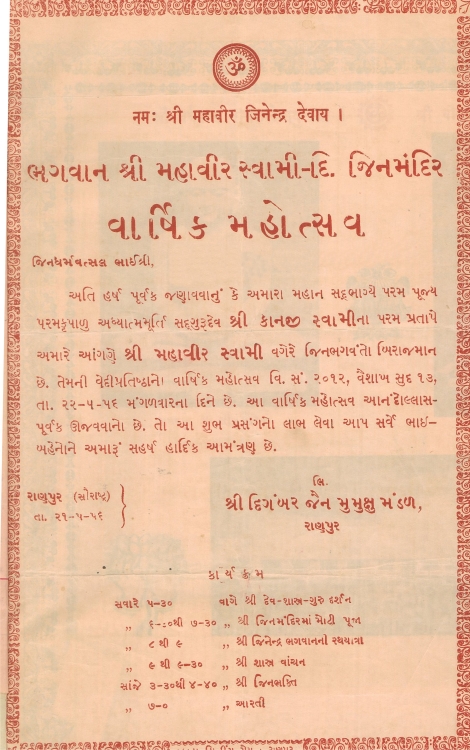 ॐ
नमः श्री महावीर जिनेन्द्र देवाय ।
ભગવાન શ્રી મહાવીર સ્વામી-દિ. જિનમંદિર
વાર્ષિક મહોત્સવ
જિનધર્મવત્સલ ભાઈશ્રી,
અતિ હર્ષ પૂર્વક જણાવવાનું કે અમારા મહાન સદ્ભાગ્યે પરમ પૂજ્ય
પરમકૃપાળુ અધ્યાત્મમૂર્તિ સદ્ગુરૂદેવ શ્રી કાનજી સ્વામીના પરમ પ્રતાપે
અમારે આંગણે શ્રી મહાવીર સ્વામી વગેરે જિનભગવંતો બિરાજમાન
છે. તેમની વેદીપ્રતિષ્ઠાનો વાર્ષિક મહોત્સવ વિ. સં. ૨૦૧૨, વૈશાખ સુદ ૧૩,
તા. ૨૨-૫-૫૬ મંગળવારના દિને છે. આ વાર્ષિક મહોત્સવ આનંદોલ્લાસ-
પૂર્વક ઊજવવાનો છે. તો આ શુભ પ્રસંગનો લાભ લેવા આપ સર્વે ભાઇ-
બહેનોને અમારૂં સહર્ષ હાર્દિક આમંત્રણ છે.
લિ.
રાણપુર (સોરાષ્ટ્ર)
તા. ૨૧-૫-૫૬
શ્રી દિગંબર જૈન મુમુક્ષુ મંડળ,
રાણપુર
કાર્યક્રમ
સવારે ૫-૩૦ વાગે શ્રી દેવ-શાસ્ત્ર-ગુરુ દર્શન
,, ૬-૦થી ૭-૩૦ ,, શ્રી જિનમંદિરમાં મોટી પૂજા
,, ૮ થી ૯ ,, શ્રી જિનેન્દ્ર ભગવાનની રથયાત્રા
,, ૯ થી ૯-૩૦ ,, શ્રી શાસ્ત્ર વાંચન
સાંજે ૩-૩૦થી ૪-૪૦ ,, શ્રી જિનભક્તિ
,, ૭-૦ ,, આરતી